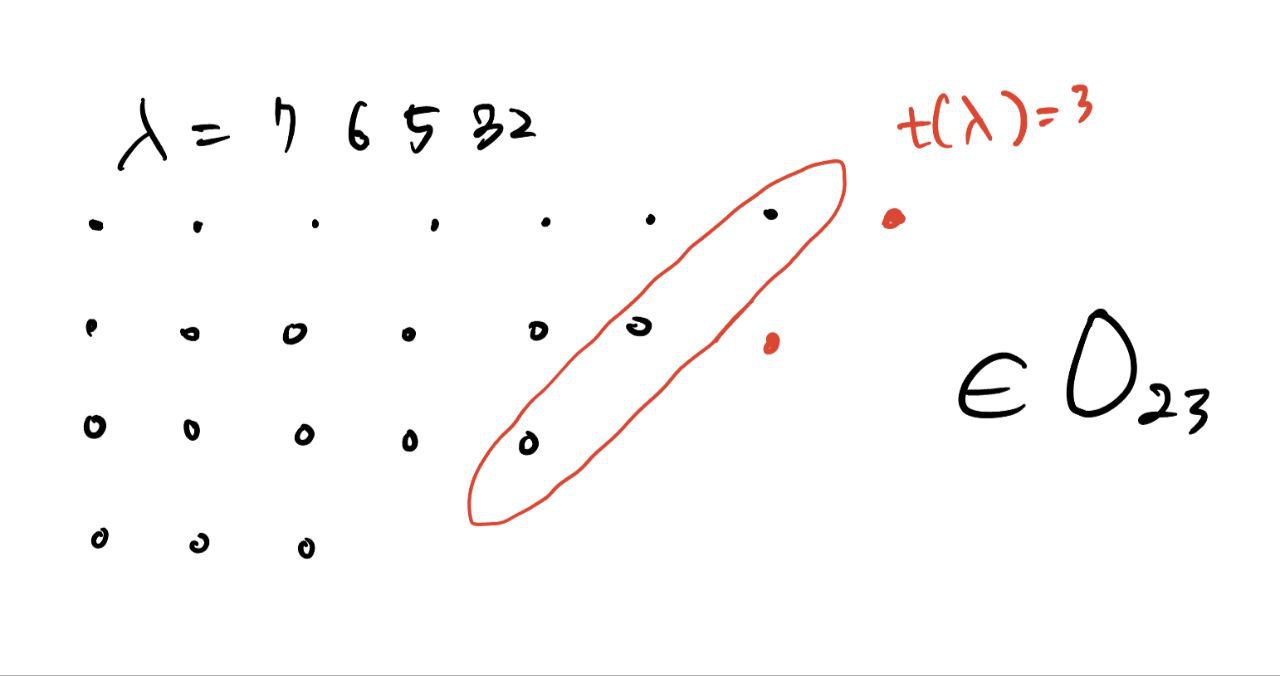 λ = 7 6 5 3 2
t(λ) = 3
∈ D₂₃